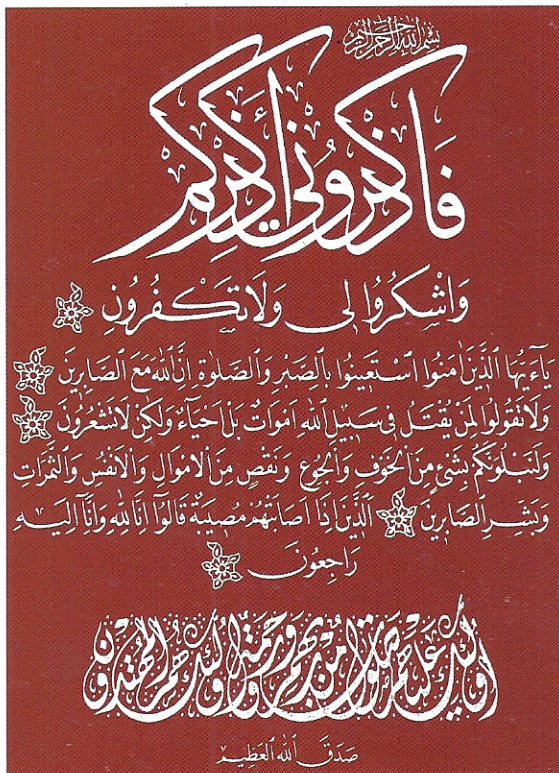 بسم الله الرحمن الرحيم
فَاذْكُرُونِي أَذْكُرْكُمْ
وَاشْكُرُوا لِي وَلَا تَكْفُرُونِ
يَاءَيُّهَا الَّذِينَ اٰمَنُوا اسْتَعِينُوا بِالصَّبْرِ وَالصَّلٰوةِ اِنَّ اللهَ مَعَ الصَّابِرِينَ
وَلَا تَقُولُوا لِمَنْ يُقْتَلُ فِي سَبِيلِ اللهِ اَمْوَاتٌ بَلْ اَحْيَاءٌ وَلٰكِنْ لَا تَشْعُرُونَ
وَلَنَبْلُوَنَّكُمْ بِشَيْءٍ مِنَ الْخَوْفِ وَالْجُوعِ وَنَقْصٍ مِنَ الْاَمْوَالِ وَالْاَنْفُسِ وَالثَّمَرَاتِ
وَبَشِّرِ الصَّابِرِينَ الَّذِينَ اِذَا اَصَابَتْهُمْ مُصِيبَةٌ قَالُوا اِنَّا لِلهِ وَاِنَّا اِلَيْهِ
رَاجِعُونَ
أُولٰئِكَ عَلَيْهِمْ صَلَوَاتٌ مِنْ رَبِّهِمْ وَرَحْمَةٌ وَأُولٰئِكَ هُمُ الْمُهْتَدُونَ
صَدَقَ اللهُ الْعَظِيمُ